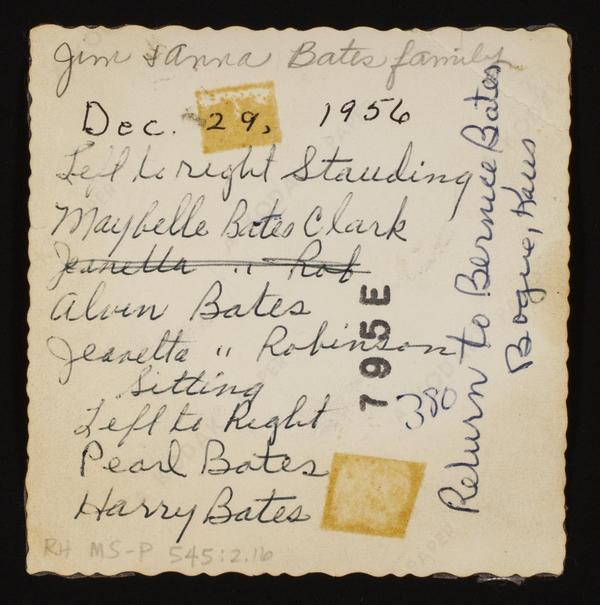 Jim & Anna Bates family
Dec. 29, 1956
Left to right Standing
Maybelle Bates Clark
Jeanetta " Rob
Alvin Bates
Jeanetta " Robinson
Sitting
Left to Right
Pearl Bates
Harry Bates
RH MS-P 545:2.16
795E
38
Return to Bernice Bates
Bogue, Kans